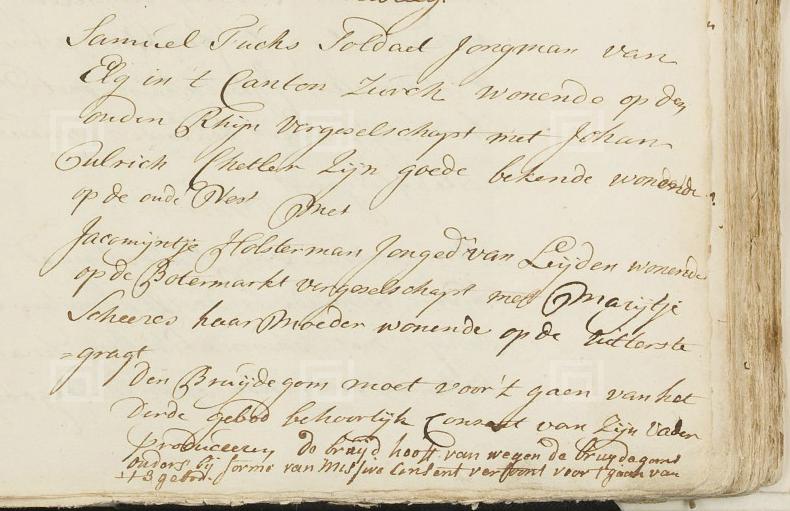 Samuel Fúchs Soldaet Jongman van
Elg in 't Canton Zúrch wonende op den
ouden Rhijn vergeselschapt met Johan
Úlrich Chetler Zijn goede bekende wonende
op de oude Vest met
Jacomijntje Holsterman Jonged van Leijden wonende
op de Botermarkt vergeselschapt met Marijtje
Scheeres haar Moeder wonende op de Uitterste
=gragt
Den Bruijdegom moet voor 't gaen van het
Derde gebod behoorlijk Consent van Zijn Vader
produceeren de bruijd heeft van wegen de bruydegoms
ouders bij forme van Missive Consent verthoont voor 't gaan van
't 3 gebod.